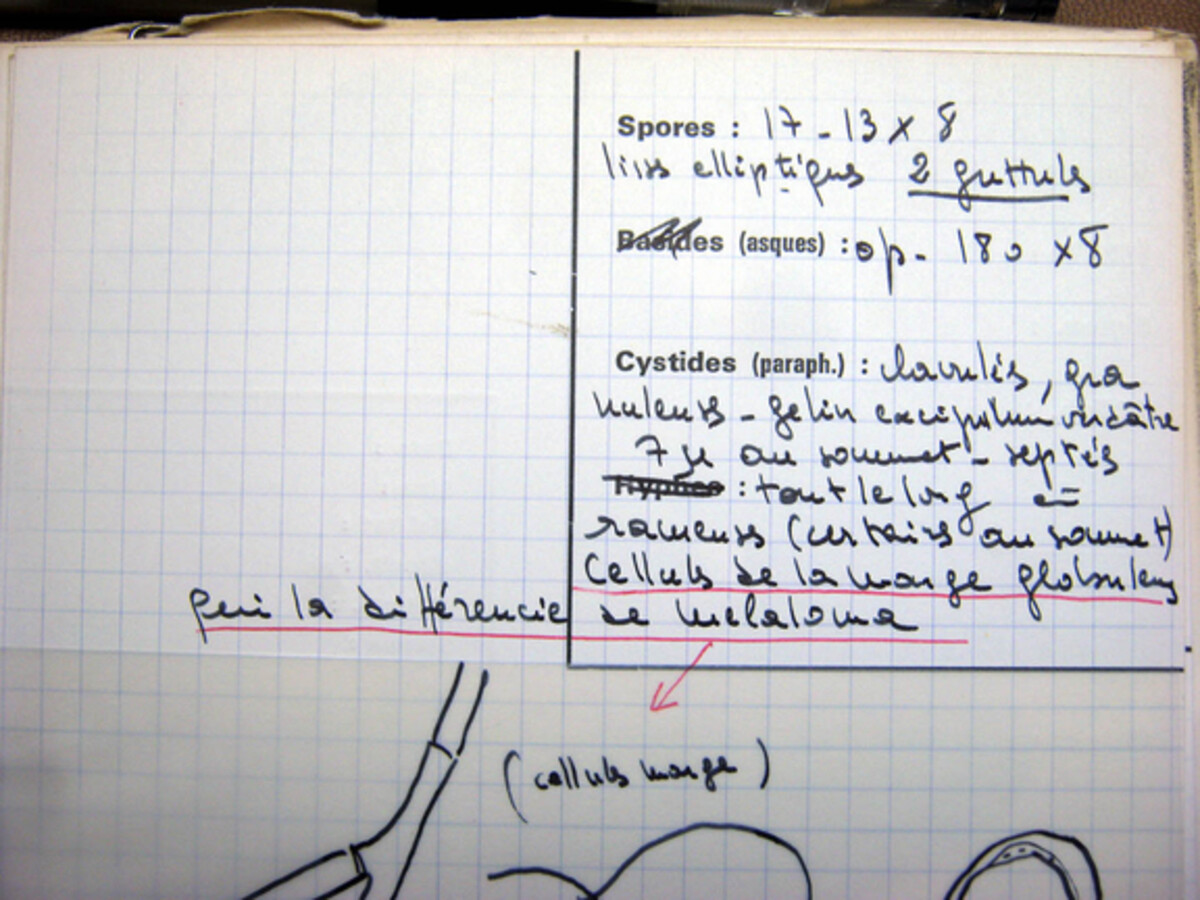 Spores : 17 - 13 x 8
liss elliptiques 2 guttuls
Basides (asques) : op. 180 x 8
Cystides (paraph.) : clavulés, gra
nuleuses - gelin excipulum verdâtre
7 µ au sommet - septés
Hyphes : tout le long et
rameuses (certains au sommet)
Celluls de la marge globuleuses
qui la différencie de melaloma
(celluls marge)